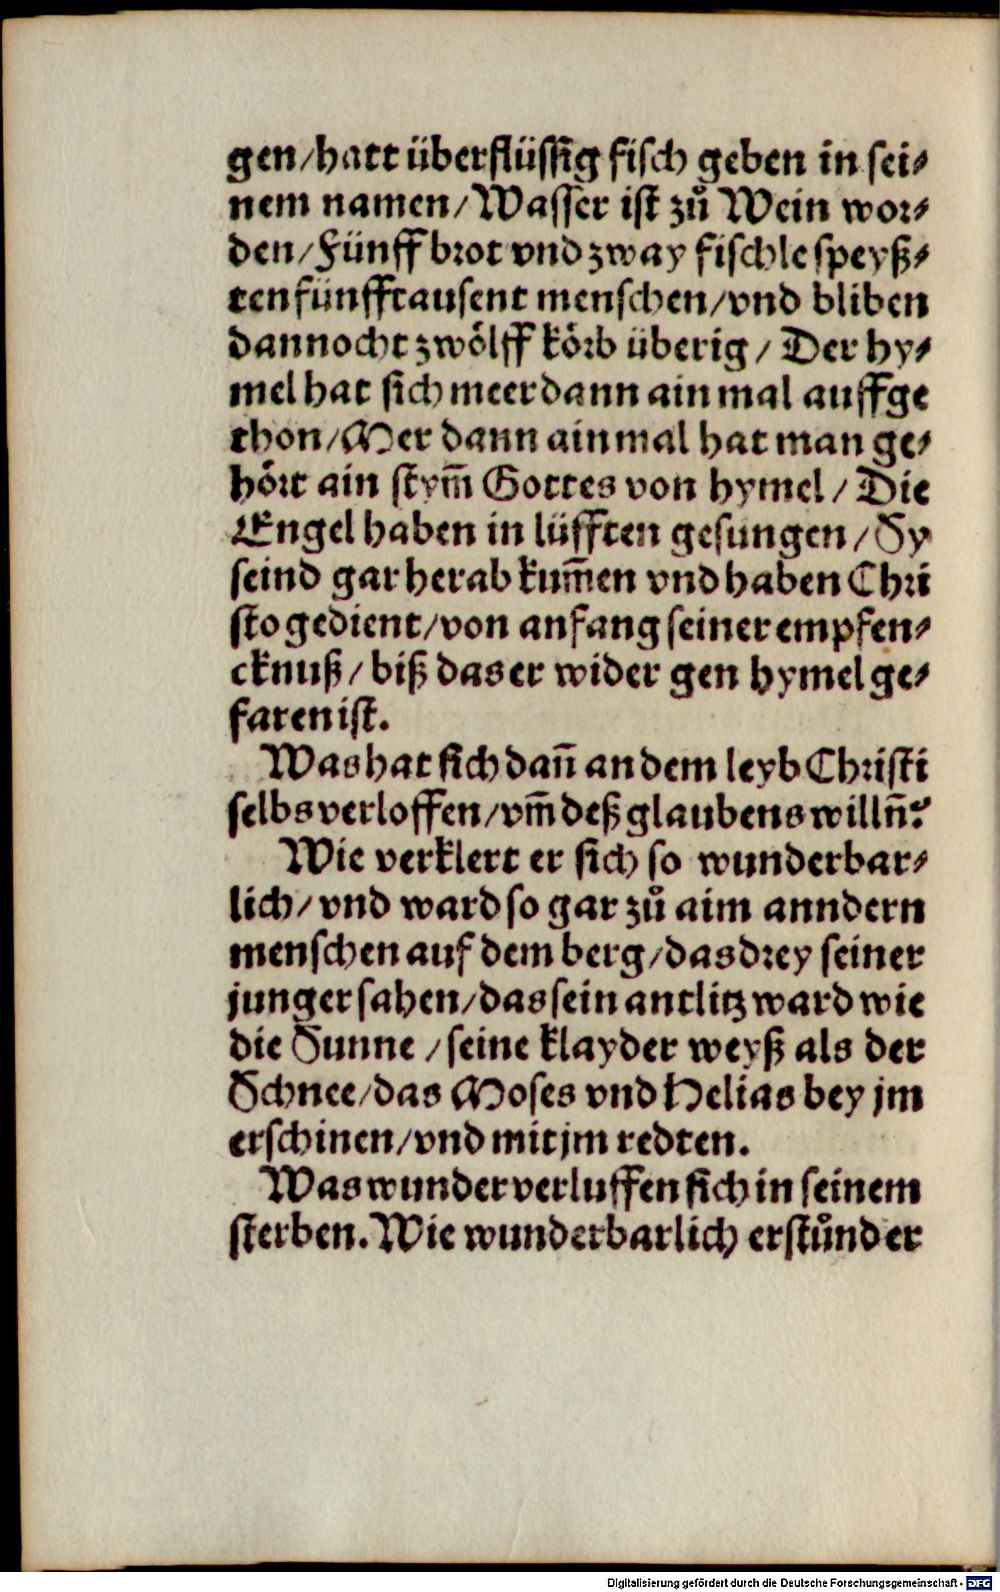 gen/hatt überflüssig fisch geben in sei⸗
nem namen/Wasser ist zů Wein wor⸗
den/Fünff brot vnd zway fischle speyß⸗
ten fünfftausent menschen/vnd bliben
dannocht zwölff körb überig/Der hy⸗
mel hat sich meer dann ain mal auffge
thon/Mer dann ain mal hat man ge⸗
hört ain stym̃ Gottes von hymel/Die
Engel haben in lüfften gesungen/Sy
seind gar herab kum̃en vnd haben Chri
sto gedient/von anfang seiner empfen⸗
cknuß/biß das er wider gen hymel ge⸗
faren ist.
Was hat sich dañ an dem leyb Christi
selbs verloffen/vm̃ deß glaubens willñ?
Wie verklert er sich so wunderbar⸗
lich/vnd ward so gar zů aim anndern
menschen auf dem berg/das drey seiner
junger sahen/das sein antlitz ward wie
die Sunne/seine klayder weyß als der
Schnee/das Moses vnd Helias bey jm
erschinen/vnd mit jm redten.
Was wunder verluffen sich in seinem
sterben.Wie wunderbarlich erstůnd er
Digitalisierung gefördert durch die Deutsche Forschungsgemeinschaft - DFG